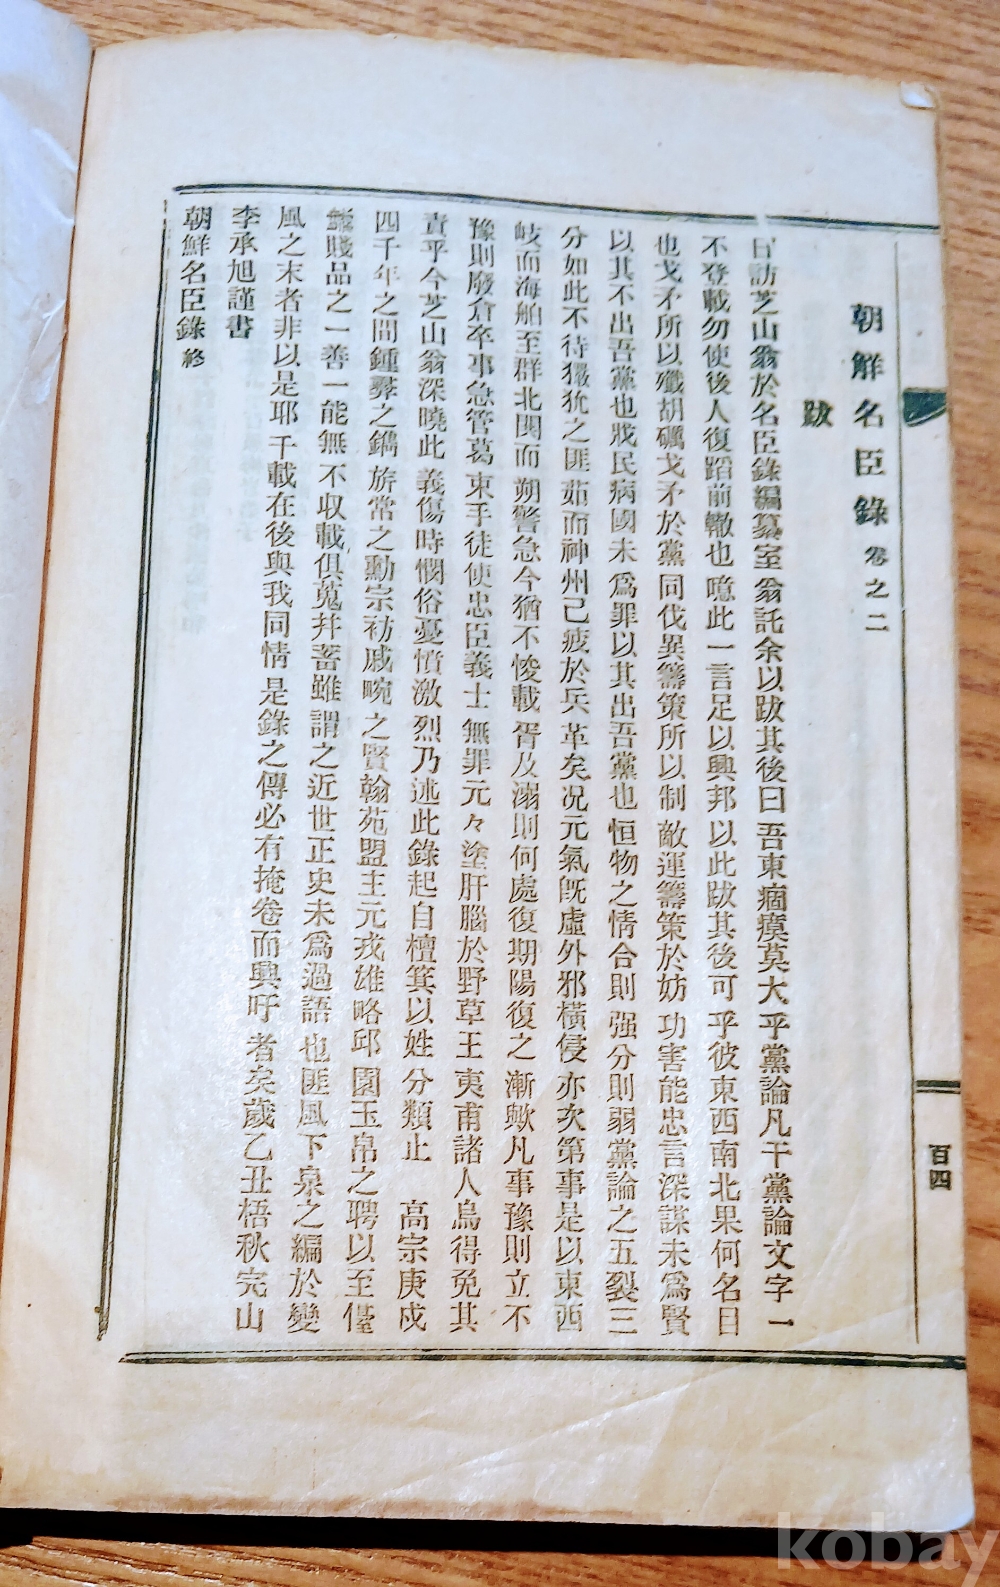 朝鮮名臣錄 卷之二
跋
日訪芝山翁於名臣錄編纂室翁託余以跋其後曰吾東痼瘼莫大乎黨論凡干黨論文字一
不登載勿使後人復蹈前轍也噫此一言足以興邦以此跋其後可乎彼東西南北果何名目
也戈矛所以殲胡礪戈矛於黨同伐異籌策所以制敵運籌策於妨功害能忠言深謀未爲賢
以其不出吾黨也戕民病國未爲罪以其出吾黨也恒物之情合則强分則弱黨論之五裂三
分如此不待玁狁之匪茹而神州已疲於兵革矣况元氣旣虛外邪橫侵亦次第事是以東西
岐而海舶至群北閧而朔警急今猶不悛載胥及溺則何處復期陽復之漸歟凡事豫則立不
豫則廢倉卒事急管葛束手徒使忠臣義士無罪元々塗肝腦於野草王夷甫諸人烏得免其
責乎今芝山翁深曉此義傷時憫俗憂憤激烈乃述此錄起自檀箕以姓分類止 高宗庚戌
四千年之間鍾彛之鐫旂常之勳宗礽戚畹之賢翰苑盟主元戎雄略邱園玉帛之聘以至僮
賤品之一善一能無不收載俱蒐幷蓄雖謂之近世正史未爲過語也匪風下泉之編於變
風之末者非以是耶千載在後與我同情是錄之傳必有掩卷而興吁者矣歲乙丑梧秋完山
李承旭謹書
朝鮮名臣錄 終
百四
kobay